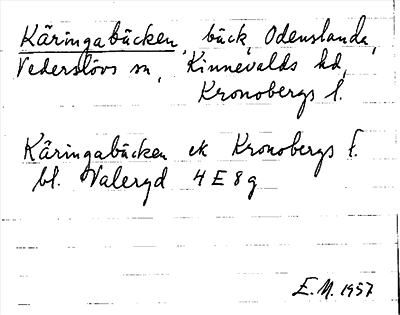 Käringabäcken, bäck, Odenslanda,
Vederslövs sn, Kinnevalds hd,
Kronobergs l.
Käringabäcken ek Kronobergs l.
bl. Valeryd 4E8g
E.M. 1957